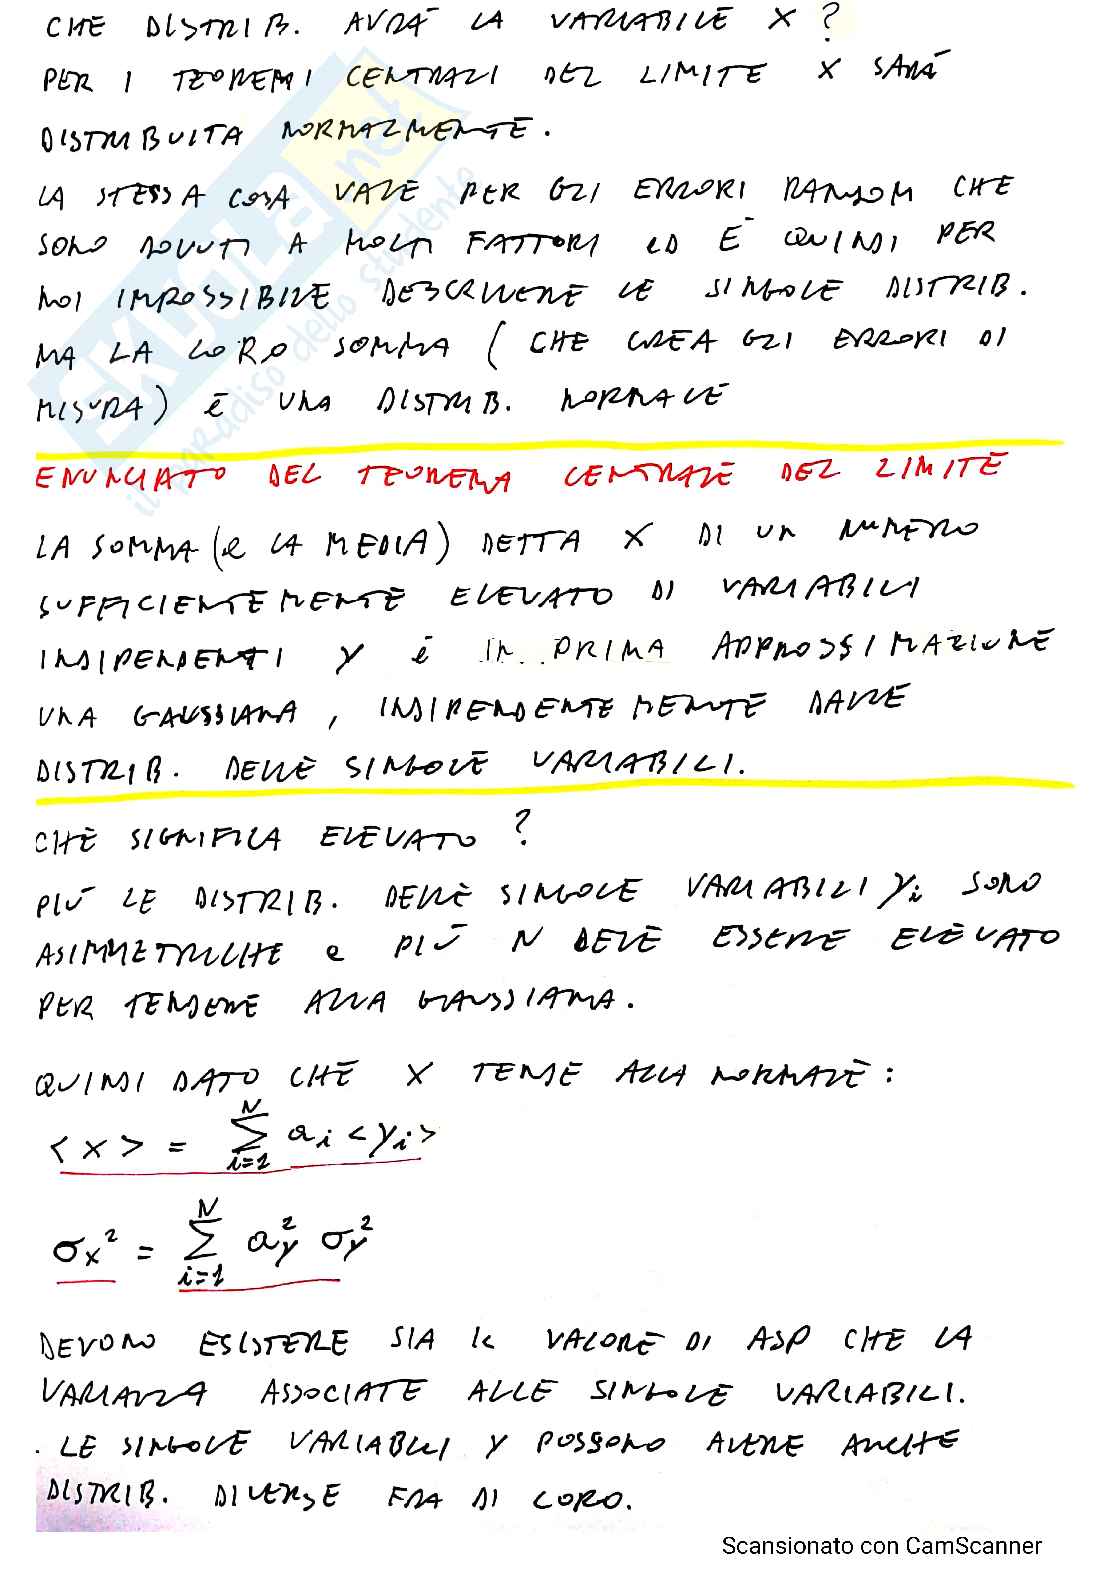 CHE DISTRIB. AVRÀ LA VARIABILE X ?
PER I TEOREMI CENTRALI DEL LIMITE X SARÀ
DISTRIBUITA NORMALMENTE.
LA STESSA COSA VALE PER GLI ERRORI RANDOM CHE
SONO DOVUTI A MOLTI FATTORI ED È QUINDI PER
NOI IMPOSSIBILE DESCRIVERE LE SINGOLE DISTRIB.
MA LA LORO SOMMA ( CHE CREA GLI ERRORI DI
MISURA) È UNA DISTRIB. NORMALE
ENUNCIATO DEL TEOREMA CENTRALE DEL LIMITE
LA SOMMA (e LA MEDIA) DETTA X DI UN NUMERO
SUFFICIENTEMENTE ELEVATO DI VARIABILI
INDIPENDENTI Y È IN PRIMA APPROSSIMAZIONE
UNA GAUSSIANA, INDIPENDENTEMENTE DALLE
DISTRIB. DELLE SINGOLE VARIABILI.
CHE SIGNIFICA ELEVATO ?
PIÙ LE DISTRIB. DELLE SINGOLE VARIABILI yi SONO
ASIMMETRICHE e PIÙ N DEVE ESSERE ELEVATO
PER TENDERE ALLA GAUSSIANA.
QUINDI DATO CHE X TENDE ALLA NORMALE :
<x> = Σ_{i=1}^{N} a_i <y_i>
σ_x² = Σ_{i=1}^{N} a_y² σ_y²
DEVONO ESISTERE SIA IL VALORE DI ASP CHE LA
VARIANZA ASSOCIATE ALLE SINGOLE VARIABILI.
. LE SINGOLE VARIABILI Y POSSONO AVERE ANCHE
DISTRIB. DIVERSE FRA DI LORO.
SKUOLA.net
il paradiso dello studente
Scansionato con CamScanner